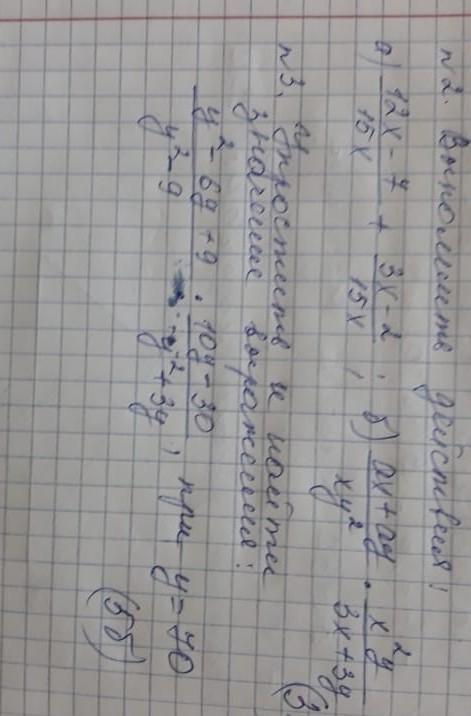 n2. Выполнить действия:
а) (12x - 7)/(15x) + (3x - 2)/(15x); б) (ax + ay)/(xy²) · (x²y)/(3x + 3y)
(3
n3. Упростить и найти
значение выражения:
(y² - 6y + 9)/(y² - 9) : (10y - 30)/(y² + 3y), при y = 70
(5б)